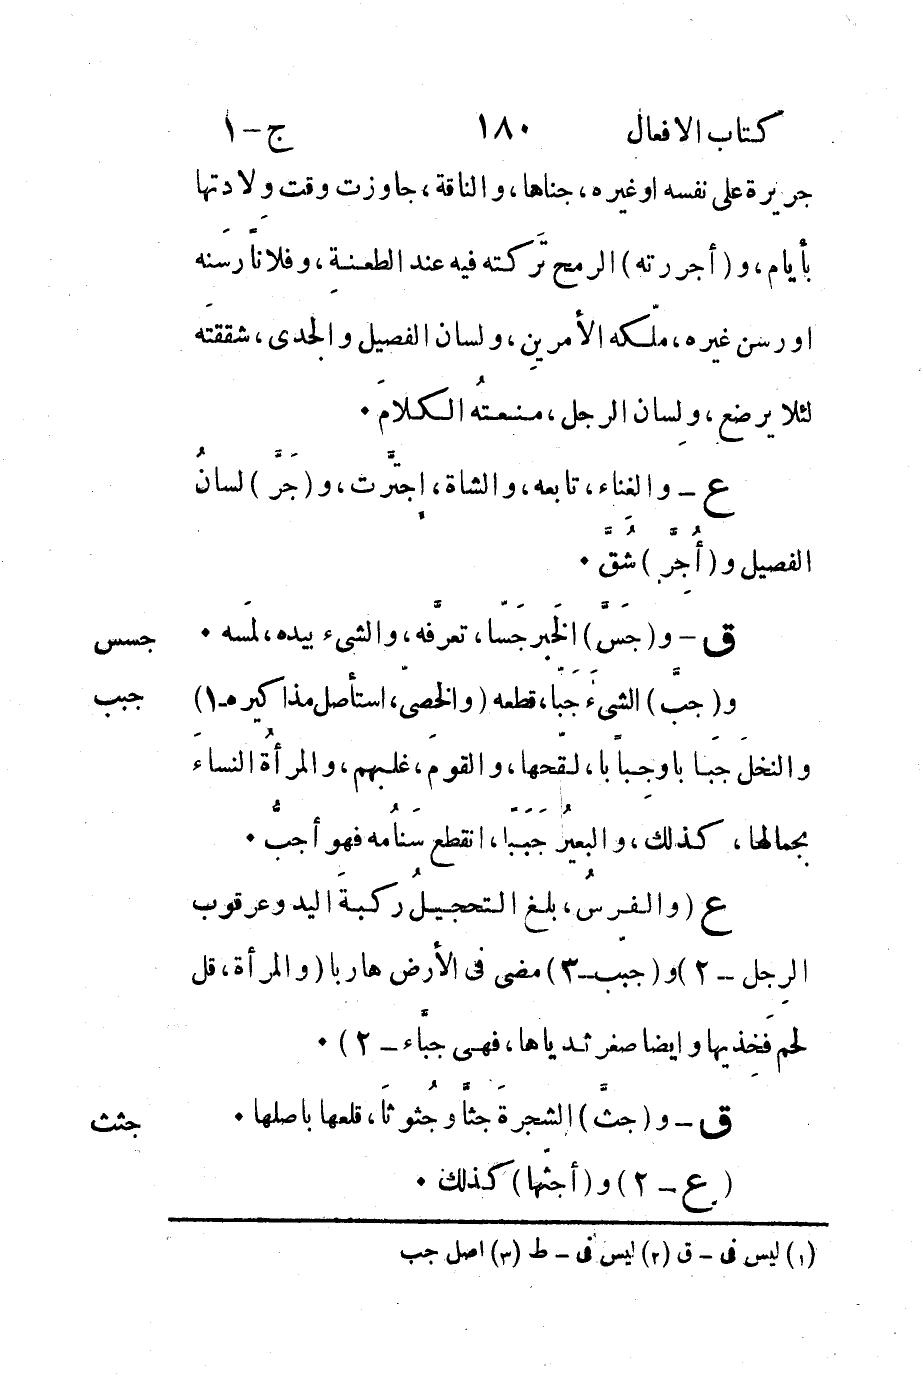 كتاب الافعال ١٨٠ ج-١
جريرة على نفسه او غيره، جناها، والناقة، جاوزت وقت ولادتها
بأيام، و(أجررته) الرمح تَركته فيه عند الطعنةِ، وفلاناً رَسَنه
او رسن غيره، ملّكه الأمرين، ولسان الفصيل والجدى، شققتَه
لئلا يرضع، ولِسان الرجل، منعتهُ الكلامَ ٠
ع - والغناء، تابعه، والشاة، اِجتَّرت، و(جَرَّ) لسانُ
الفصيل و(أُجِرَّ) شُقَّ ٠
ق - و(جَسَّ) الخَبر جَسّا، تعرفَّه، والشىء بيده، لمَسه ٠
جسس
و(جبَّ) الشىءَ جَبّا، قطعه (والخصىّ، استأصل مذاكيره-١)
جبب
والنخلَ جَبّا باوجِباًبا، لقّحها، والقومَ، غلبهم، والمرأةُ النساءَ
بجمالها، كذلك، والبعيرُ جَبَبًا، انقطع سَنامُه فهو أجبُّ ٠
ع (والفرسُ، بلغ التحجيلُ ركبةَ اليد وعرقوب
الرِجل - ٢) و(جبّب-٣) مضى فى الأرض هاربا (والمرأة، قل
لحم فَخِذيها وايضا صغر ثدياها، فهى جبَّاء - ٢) ٠
ق - و(جثَّ) الشجرةَ جثًّا وجُثوثاَ، قلعها باصلها ٠
جثث
(ع - ٢) و(أجثّها) كذلك ٠
(١) ليس فى - ق (٢) ليس فى - ط (٣) اصل جب